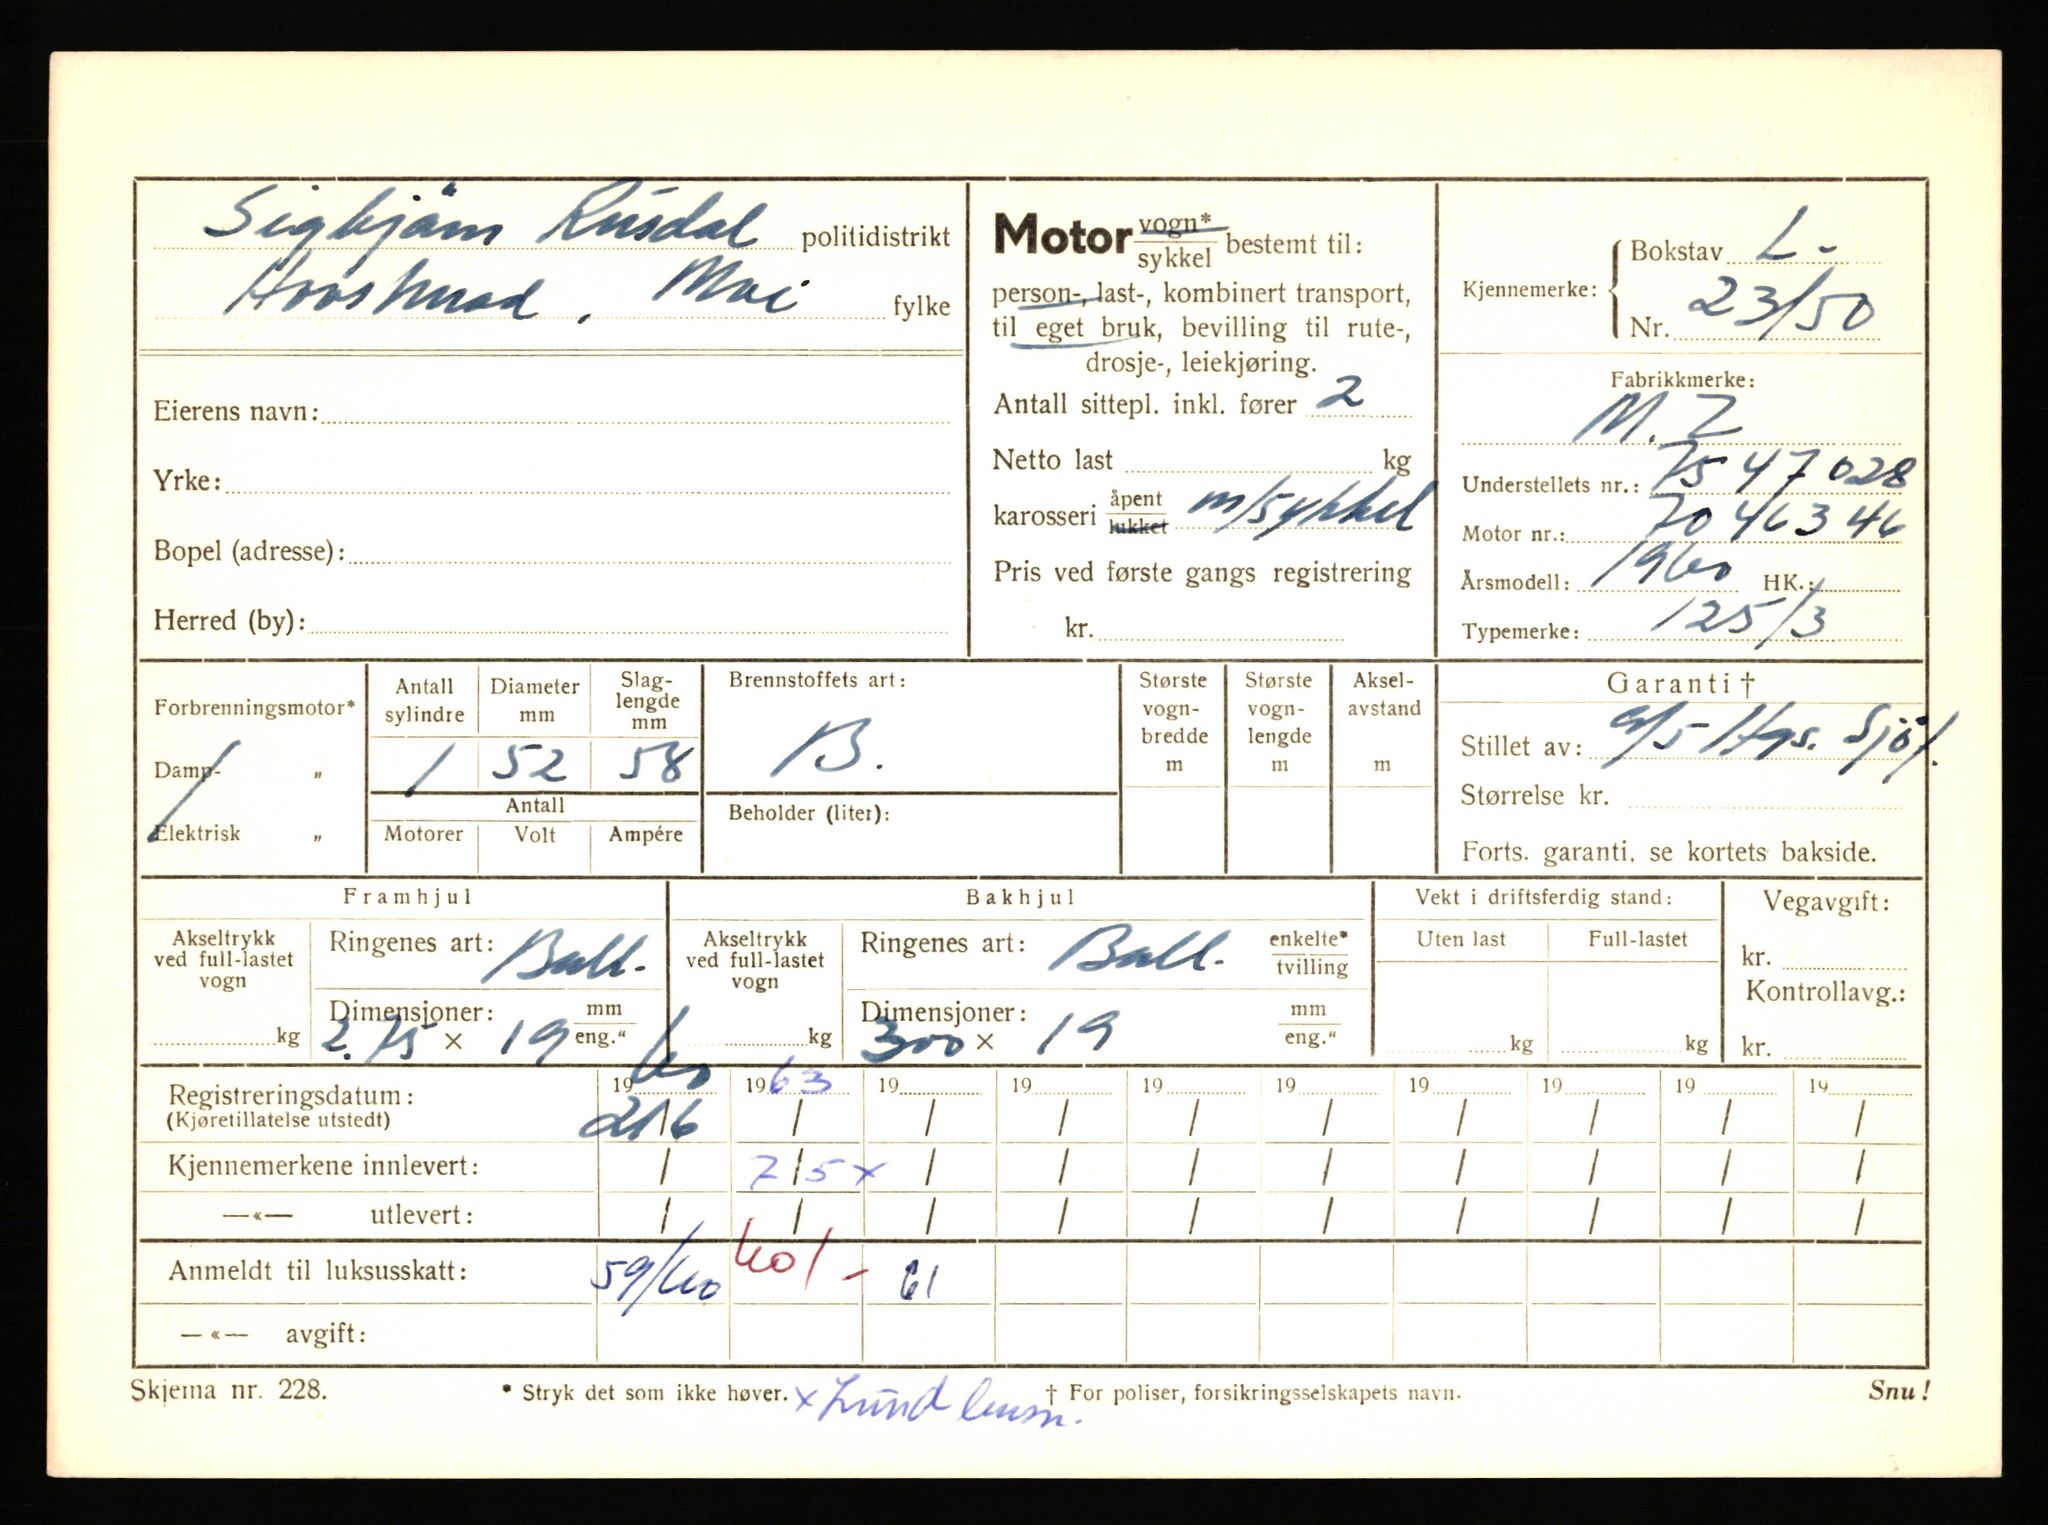 Sigbjørn Rusdal politidistrikt
Hovsherad, Moi fylke
Eierens navn:
Yrke:
Bopel (adresse):
Herred (by):
Motor vogn* / sykkel bestemt til:
person-, last-, kombinert transport,
til eget bruk, bevilling til rute-,
drosje-, leiekjøring.
Antall sittepl. inkl. fører 2
Netto last kg
karosseri åpent / lukket m/sykkel
Pris ved første gangs registrering
kr.
Kjennemerke: Bokstav L-
Nr. 23150
Fabrikkmerke:
M.Z
Understellets nr.: 7547028
Motor nr.: 7046346
Årsmodell: 1960 HK.:
Typemerke: 125/3
Forbrenningsmotor*
Damp- "
Elektrisk "
Antall sylindre Diameter mm Slag-lengde mm
1 52 58
Antall
Motorer Volt Ampére
Brennstoffets art:
B.
Beholder (liter):
Største vogn-bredde m
Største vogn-lengde m
Aksel-avstand m
Garanti †
Stillet av: a/s Hgs. Sjøf.
Størrelse kr.
Forts. garanti, se kortets bakside.
Framhjul
Akseltrykk ved full-lastet vogn kg
Ringenes art: Ball.
Dimensjoner: mm / eng."
2.75 x 19
Bakhjul
Akseltrykk ved full-lastet vogn kg
Ringenes art: Ball. enkelte* / tvilling
Dimensjoner: mm / eng."
300 x 19
Vekt i driftsferdig stand:
Uten last Full-lastet
kg kg
Vegavgift:
kr.
Kontrollavg.:
kr.
Registreringsdatum: 1960 1963 19 19 19 19 19 19 19 19
(Kjøretillatelse utstedt) 21/6 / / / / / / / / /
Kjennemerkene innlevert: / 7/5 x / / / / / / / /
—«— utlevert: / / / / / / / / / /
Anmeldt til luksusskatt: 59/60 60/- 61
—«— avgift:
Skjema nr. 228. * Stryk det som ikke høver. x Lund lensm. † For poliser, forsikringsselskapets navn. Snu!